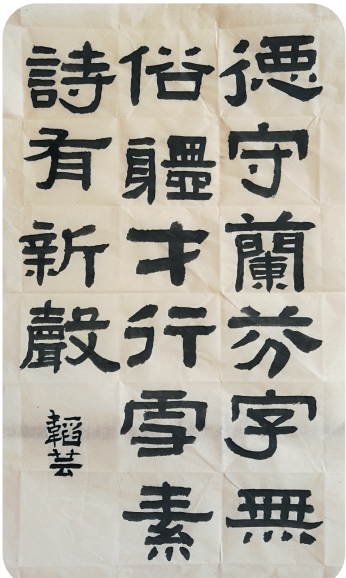 德守蘭芬字無
俗軆才行雪素
詩有新聲
韜芸